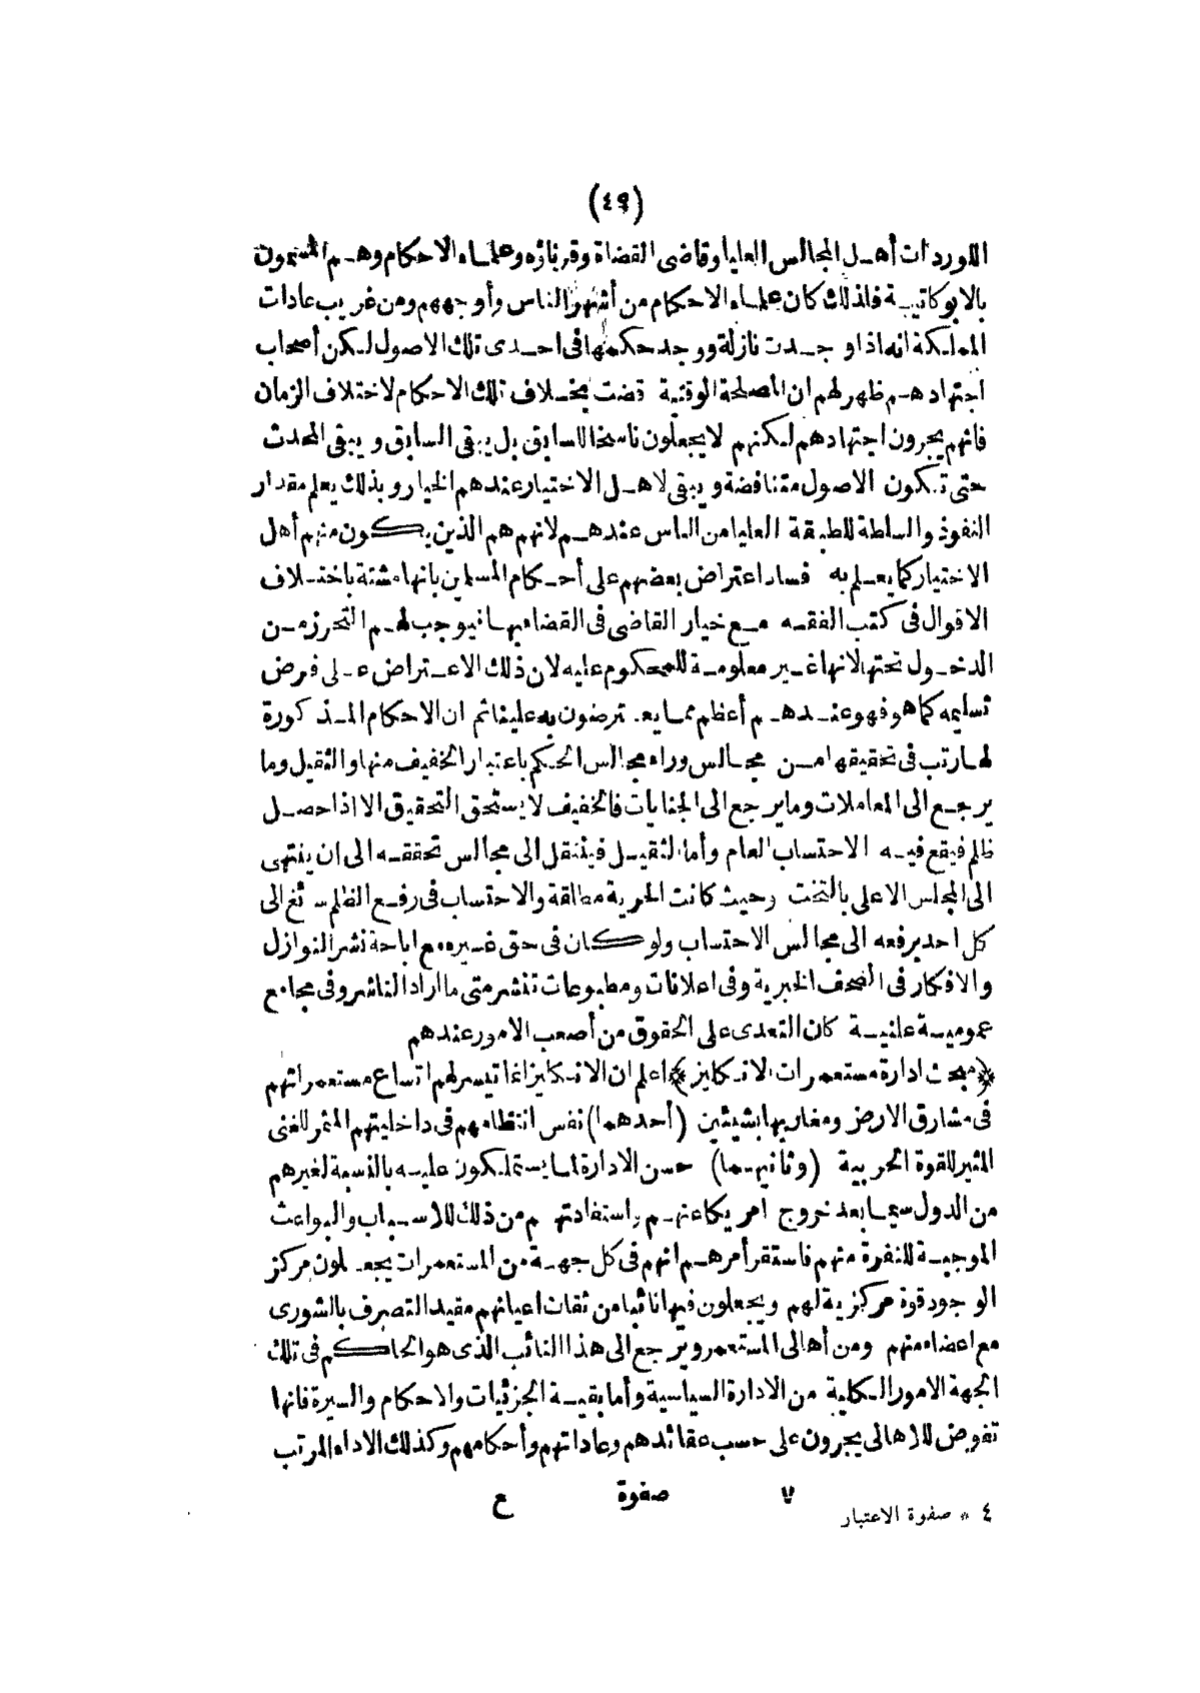 (٤٩)
اللوردات أهل المجالس العليا وقاضى القضاة وقرناؤه وعلماء الاحكام وهم المسمون
بالابوكاتية فلذلك كان علماء الاحكام من أشهر الناس وأوجههم ومن غريب عادات
المملكة انه اذا وجدت نازلة ووجد حكمها فى احدى تلك الاصول لكن أصحاب
اجتهادهم ظهر لهم ان المصلحة الوقتية قضت بخلاف تلك الاحكام لاختلاف الزمان
فانهم يجرون اجتهادهم لكنهم لا يجعلون ناسخا للسابق بل يبقى السابق ويبقى المحدث
حتى تكون الاصول متناقضة ويبقى لاهل الاختيار عندهم الخيار وبذلك يعلم مقدار
النفوذ والسلطة للطبقة العليا من الناس عندهم لانهم هم الذين يكون منهم أهل
الاختيار كما يعلم به فساد اعتراض بعضهم على أحكام المسلمين بانها مشتة باختلاف
الاقوال فى كتب الفقه مع خيار القاضى فى القضاء بها فيوجب لهم التحرز من
الدخول تحتها لانها غير معلومة للمحكوم عليه لان ذلك الاعتراض على فرض
تسليمه كما هو فهو عندهم أعظم مما يعترضون به علينا ثم ان الاحكام المذكورة
لها رتب فى تحقيقها من مجالس وراء مجالس الحكم باعتبار الخفيف منها والثقيل وما
يرجع الى المعاملات وما يرجع الى الجنايات فالخفيف لا يستحق التحقيق الا اذا حصل
ظلم فيقع فيه الاحتساب العام وأما الثقيل فينتقل الى مجالس تحققه الى ان ينتهى
الى المجلس الاعلى بالتخت وحيث كانت الحرية مطلقة والاحتساب فى رفع الظلم سائغ الى
كل احد يرفعه الى مجالس الاحتساب ولو كان فى حق غيره مع اباحة نشر النوازل
والافكار فى الصحف الخبرية وفى اعلانات ومطبوعات تنشر متى ما اراد الناشر وفى مجامع
عمومية علنية كان التعدى على الحقوق من أصعب الامور عندهم
﴿مبحث ادارة مستعمرات الانكليز﴾ اعلم ان الانكليز انما تيسر لهم اتساع مستعمراتهم
فى مشارق الارض ومغاربها بشيئين (أحدهما) نفس انتظامهم فى داخليتهم المثمر للغنى
المثير للقوة الحربية (وثانيهما) حسن الادارة لما يستملكون عليه بالنسبة لغيرهم
من الدول سيما بعد خروج امريكا عنهم واستفادتهم من ذلك للاسباب والبواعث
الموجبة للنفرة منهم فاستقر أمرهم انهم فى كل جهة من المستعمرات يجعلون مركز
الوجود قوة مركزية لهم ويجعلون فيها نائبا من ثقات اعيانهم مقيد التصرف بالشورى
مع اعضاء منهم ومن أهالى المستعمر ويرجع الى هذا النائب الذى هو الحاكم فى تلك
الجهة الامور الكلية من الادارة السياسية وأما بقية الجزئيات والاحكام والسيرة فانها
تفوض للاهالى يجرون على حسب عقائدهم وعاداتهم وأحكامهم وكذلك الاداء المرتب
٧ صفوة ع
٤ * صفوة الاعتبار